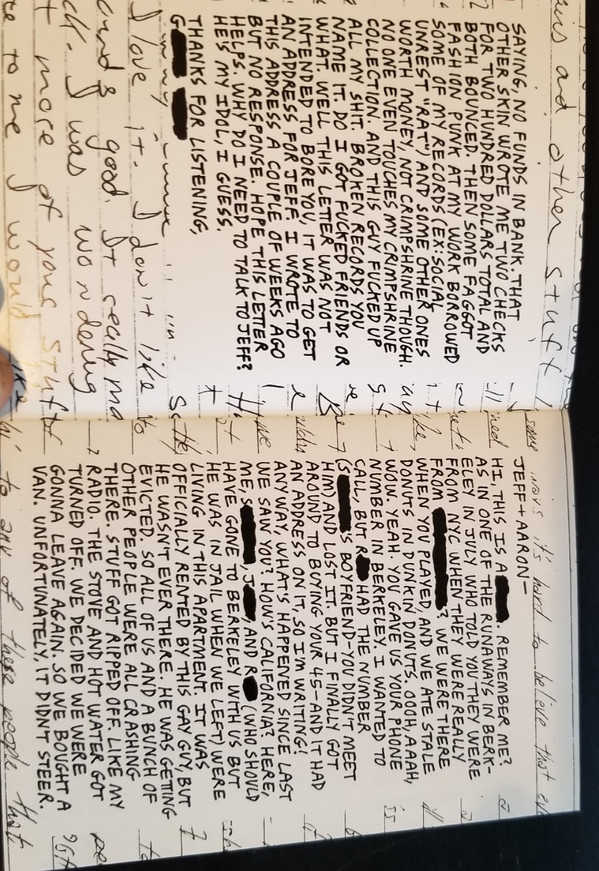 and other stuff
SAYING, NO FUNDS IN BANK. THAT
OTHER SKIN WROTE ME TWO CHECKS
FOR TWO HUNDRED DOLLARS TOTAL AND
BOTH BOUNCED. THEN SOME FAGGOT
FASHION PUNK AT MY WORK BORROWED
SOME OF MY RECORDS (EX: SOCIAL
UNREST "RAT") AND SOME OTHER ONES
WORTH MONEY, NOT CRIMPSHRINE THOUGH.
NO ONE EVEN TOUCHES MY CRIMPSHRINE
COLLECTION. AND THIS GUY FUCKED UP
ALL MY SHIT. BROKEN RECORDS YOU
NAME IT. DO I GOT FUCKED FRIENDS OR
WHAT. WELL THIS LETTER WAS NOT
INTENDED TO BORE YOU, IT WAS TO GET
AN ADDRESS FOR JEFF. I WROTE TO
THIS ADDRESS A COUPLE OF WEEKS AGO
BUT NO RESPONSE. HOPE THIS LETTER
HELPS. WHY DO I NEED TO TALK TO JEFF?
HE'S MY IDOL, I GUESS.
THANKS FOR LISTENING,
G
I love it. I don't like to
good. It really ma
ck. I was wondering
t more of your stuff
to me I would like
it's hard to believe that
JEFF + AARON-
HI. THIS IS A . REMEMBER ME?
AS IN ONE OF THE RUNAWAYS IN BERK-
ELEY IN JULY WHO TOLD YOU THEY WERE
FROM NYC WHEN THEY WERE REALLY
FROM ? WE WERE THERE
WHEN YOU PLAYED, AND WE ATE STALE
DONUTS IN DUNKIN DONUTS. OOOH, AAAH,
WOW. YEAH. YOU GAVE US YOUR PHONE
NUMBER IN BERKELEY. I WANTED TO
CALL, BUT R HAD THE NUMBER
(S 'S BOYFRIEND-YOU DIDN'T MEET
HIM) AND LOST IT. BUT I FINALLY GOT
AROUND TO BUYING YOUR 45-AND IT HAD
AN ADDRESS ON IT, SO I'M WRITING!
ANYWAY, WHAT'S HAPPENED SINCE LAST
WE SAW YOU? HOW'S CALIFORNIA? HERE,
ME, S , J , AND R (WHO SHOULD
HAVE GONE TO BERKELEY WITH US BUT
HE WAS IN JAIL WHEN WE LEFT) WERE
LIVING IN THIS APARTMENT. IT WAS
OFFICIALLY RENTED BY THIS GAY GUY, BUT
HE WASN'T EVER THERE. HE WAS GETTING
EVICTED. SO ALL OF US AND A BUNCH OF
OTHER PEOPLE WERE ALL CRASHING
THERE. STUFF GOT RIPPED OFF. LIKE MY
RADIO. THE STOVE AND HOT WATER GOT
TURNED OFF. WE DECIDED WE WERE
GONNA LEAVE AGAIN. SO WE BOUGHT A
VAN. UNFORTUNATELY, IT DIDN'T STEER.
to any of these people that